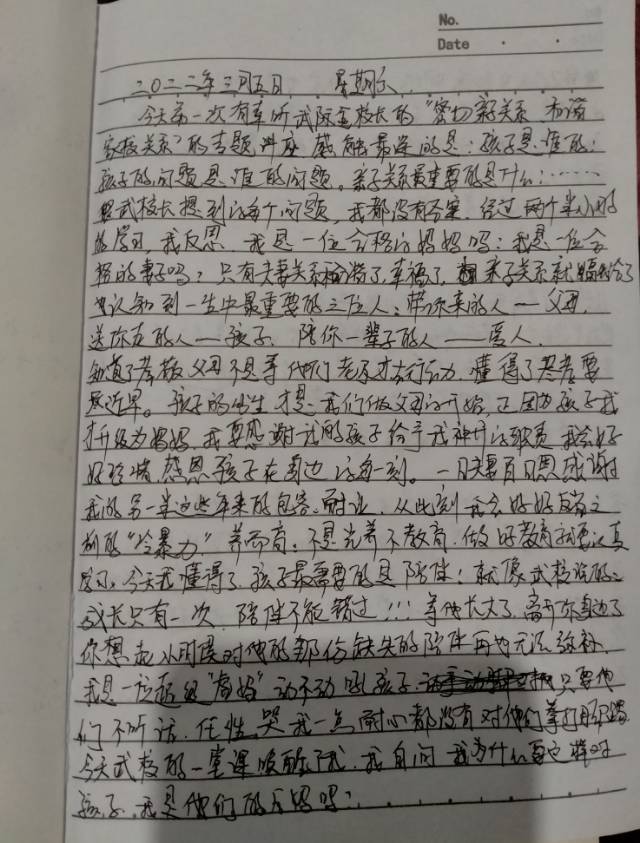 No.
Date
二〇二二年三月五日. 星期六.
今天第一次有幸听武际金校长的“密切亲子关系 和谐
家校关系”的专题讲座 感触最深的是：孩子是谁的；
孩子的问题是谁的问题。亲子关系最重要的是什么；……
武校长提到的每个问题，我都没有答案. 经过两个半小时
的学习，我反思. 我是一位合格的妈妈吗；我是一位合
格的妻子吗？只有夫妻关系和谐了，幸福了，亲子关系就
认知到一生中最重要的三位人；带你来的人—父母.
送你走的人—孩子. 陪你一辈子的人——爱人.
知道了孝敬父母不是等他们老了才去行动. 懂得了尽孝要
尽早。孩子的出生才是我们做父母的开始，正因为孩子我
才升级为妈妈. 我要感谢我的孩子给予我神圣的职责 我会好
好珍惜 感恩孩子在身边的每一刻。一日夫妻百日恩感谢
我的另一半这些年来的包容、耐心，从此刻我会好好反省之
前的“冷暴力”养而育；不是光养不教育. 做好教育就要认真
学习. 今天我懂得了孩子最需要的是陪伴！就像武校说的
成长只有一次 陪伴不能错过！！！等他长大了，离开你身边了
你想起小时候对他的那份缺失的陪伴再也无法弥补.
我是一位超级“虎妈”动不动吼孩子. 只要他
们不听话. 任性、哭我一点耐心都没有对他们拳打脚踢
今天武校的一堂课唤醒了我. 我自问 我为什么要这样对
孩子. 我是他们的后妈吗？